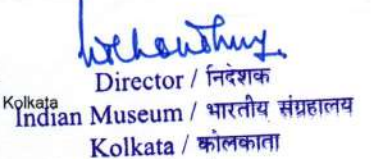 Director / निदेशक
Kolkata
Indian Museum / भारतीय संग्रहालय
Kolkata / कोलकाता